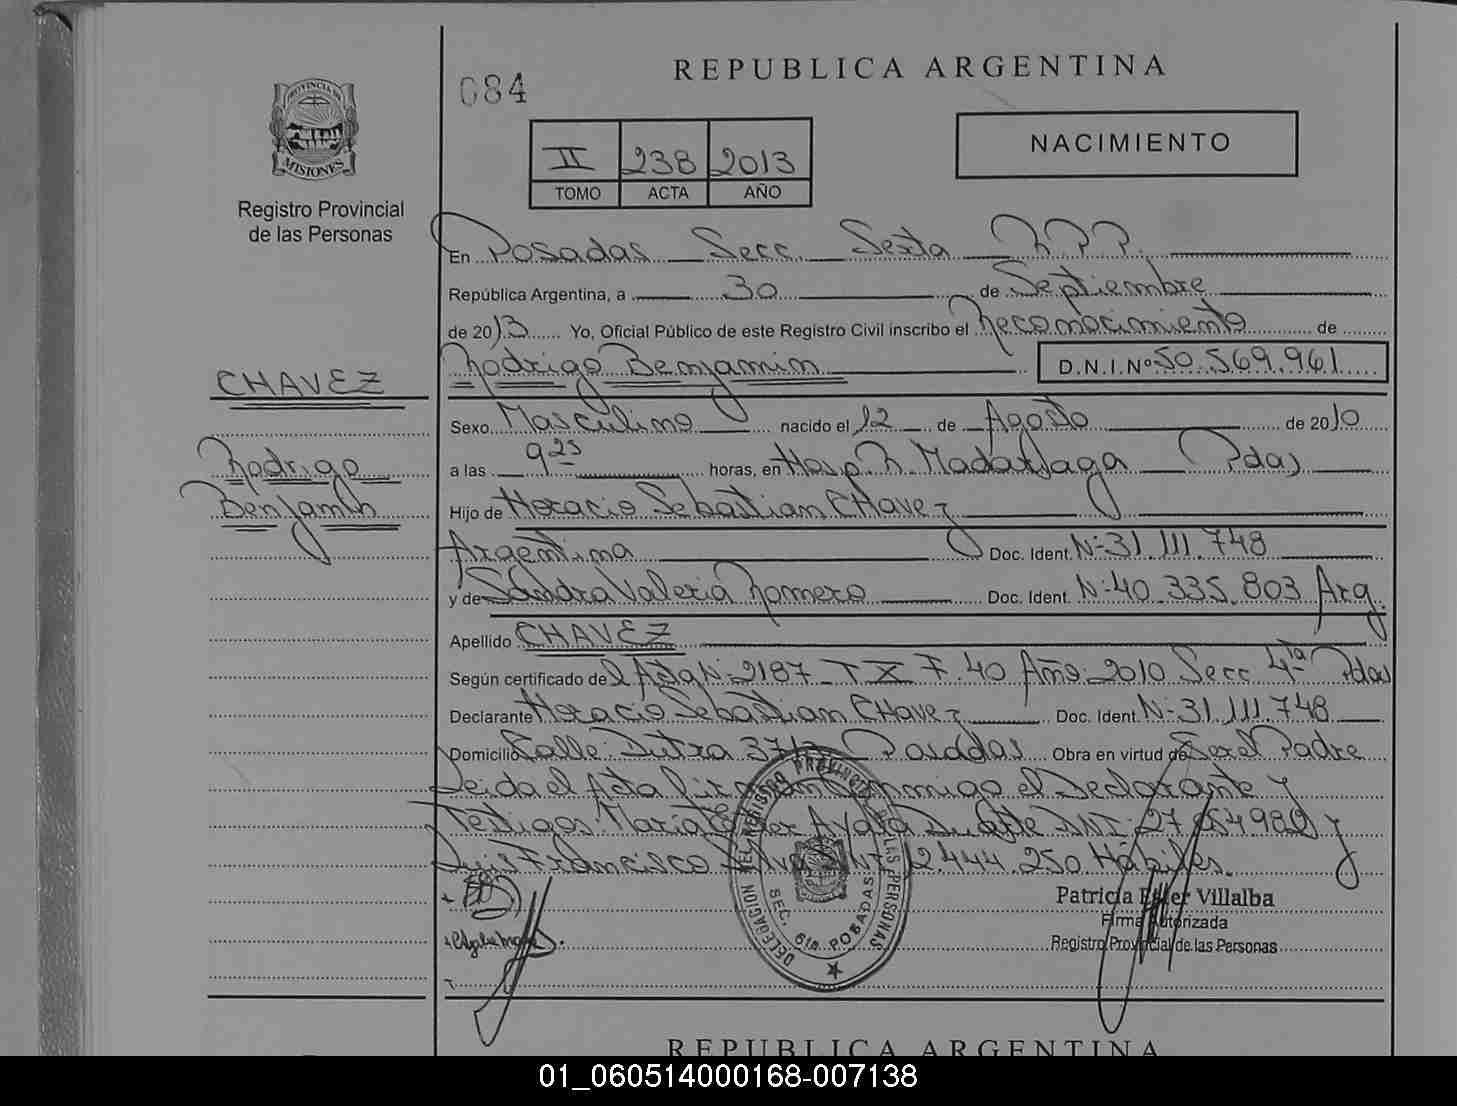 084
REPUBLICA ARGENTINA
PROVINCIA DE
MISIONES
Registro Provincial
de las Personas
II 238 2013
TOMO ACTA AÑO
NACIMIENTO
En Posadas Secc. Sexta R.P.P.
República Argentina, a 30 de Septiembre
de 2013 Yo, Oficial Público de este Registro Civil inscribo el Reconocimiento de
Rodrigo Benjamin D.N.I.Nº 50.569.961
CHAVEZ
Sexo Masculino nacido el 12 de Agosto de 2010
Rodrigo
a las 9 25 horas, en Hosp. R. Madariaga Pdas
Benjamin
Hijo de Horacio Sebastian CHavez
Argentina Doc. Ident. Nº 31.111.748
y de Sandra Valeria Romero Doc. Ident. Nº 40.335.803 Arg.
Apellido CHAVEZ
Según certificado de l Acta Nº 2187 T X F. 40 Año 2010 Secc 4ta Pdas
Declarante Horacio Sebastian CHavez Doc. Ident. Nº 31.111.748
Domicilio Calle Dutra Posadas Obra en virtud de Ser el Padre
Leida el Acta firman conmigo el Declarante y
Testigos Maria Ester Ayala Duarte DNI 27
Luis Francisco 444.250 Hábiles.
DELEGACION DEL REGISTRO PROVINCIAL DE LAS PERSONAS
SEC. 6ta POSADAS
Patricia Ester Villalba
Firma Autorizada
Registro Provincial de las Personas
REPUBLICA ARGENTINA
01_060514000168-007138